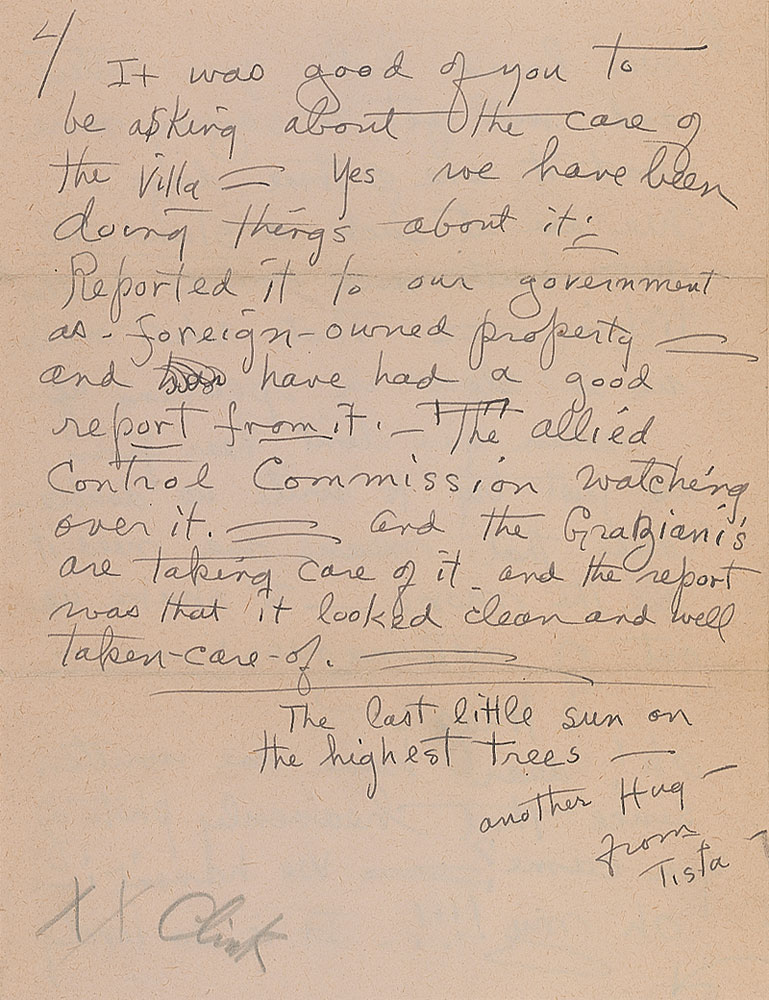 4/
It was good of you to
be asking about the care of
the Villa = Yes we have been
doing things about it:
Reported it to our government
as - foreign-owned property —
and have had a good
report from it. — The allied
Control Commission watching
over it. = and the Graziani's
are taking care of it - and the report
was that it looked clean and well
taken-care-of. =
The last little sun on
the highest trees —
another Hug —
from
Tista
XX Clink